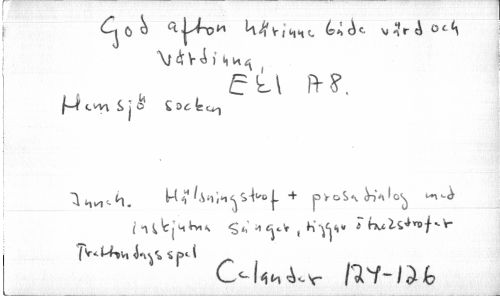 God afton härinne både värd och
värdinna,
EEI A8.
Hemsjö socken
Inneh. Hälsningstrof + prosadialog med
inskjutna sånger, tiggar ötaczstrofer
Trettondagsspel
Celander 124-126